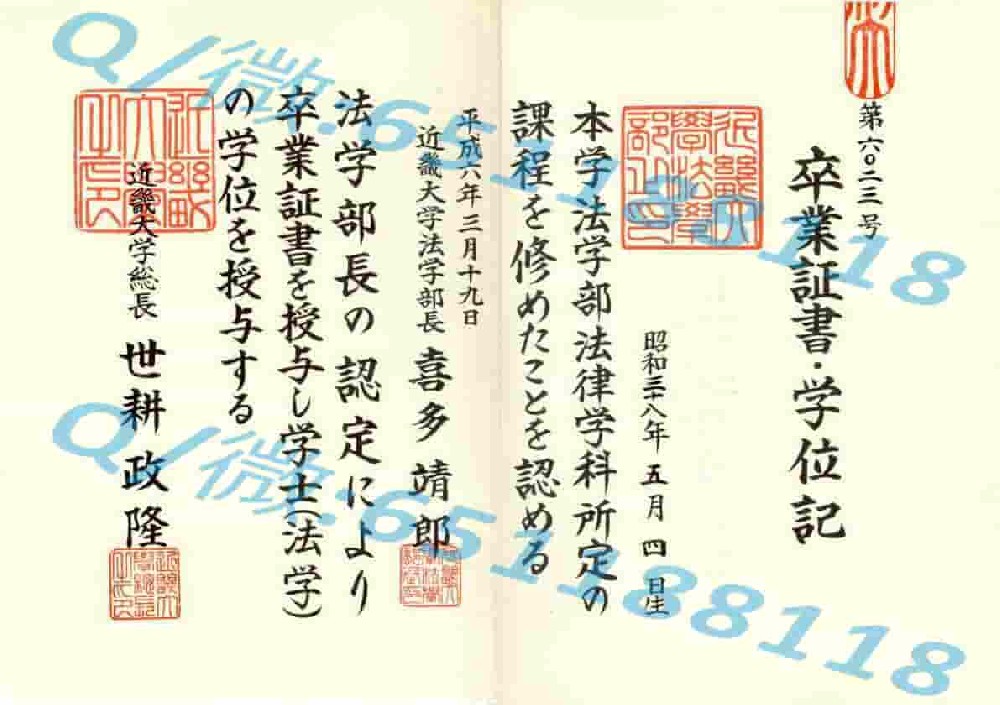 第六〇二三号
卒業証書・学位記
近畿大學法學部之印
昭和三十八年 五月 四 日生
本学法学部法律学科所定の
課程を修めたことを認める
平成六年三月十九日
近畿大学法学部長 喜多靖郎
法学部長の認定により
卒業証書を授与し学士(法学)
の学位を授与する
近畿大學之印
近畿大学総長 世耕政隆
近畿大學總長之印
Q/微:651188118
Q/微:651188118